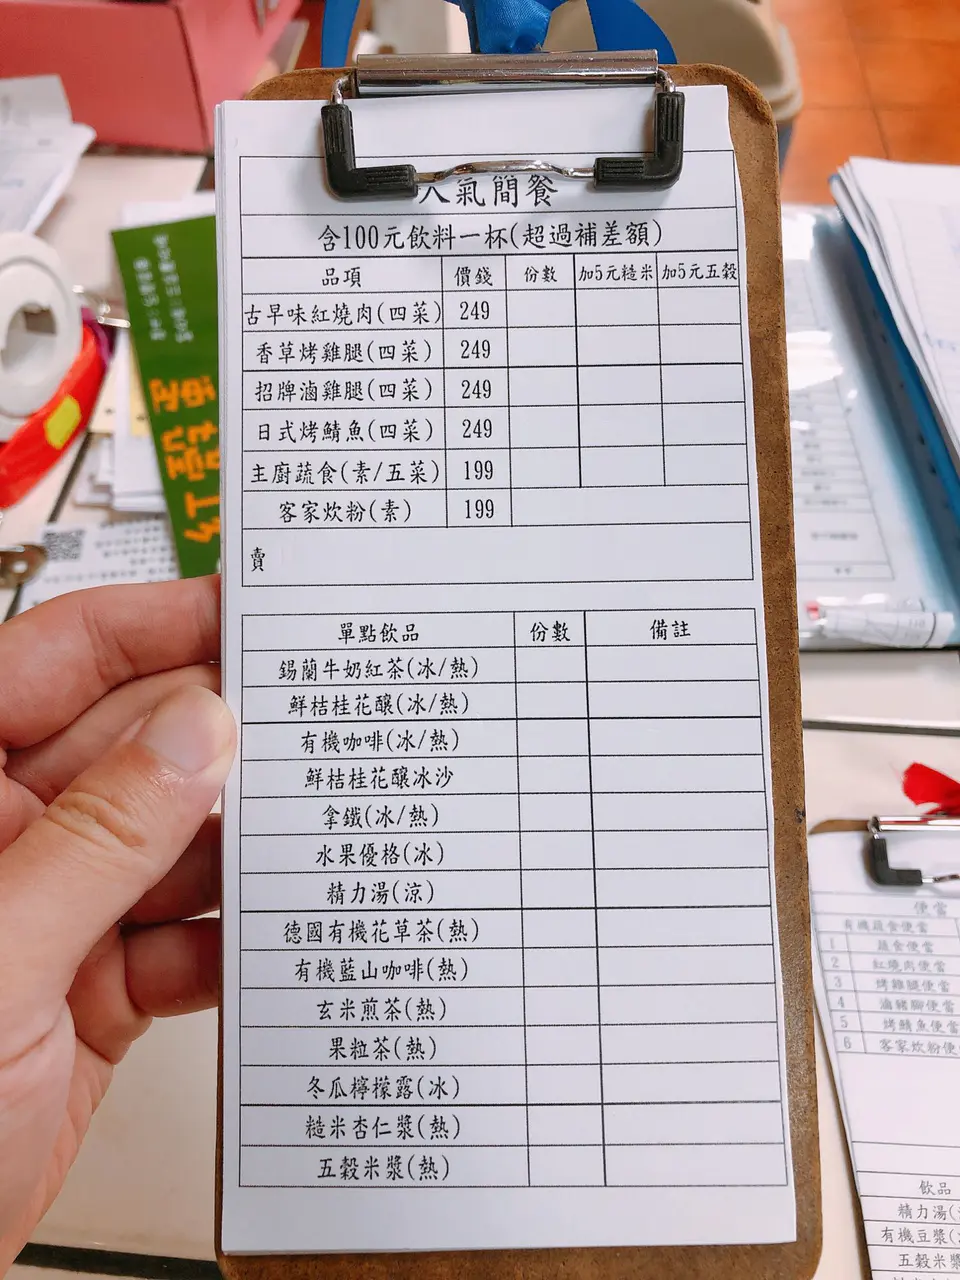 人氣簡餐
含100元飲料一杯(超過補差額)
品項 價錢 份數 加5元糙米 加5元五穀
古早味紅燒肉(四菜) 249
香草烤雞腿(四菜) 249
招牌滷雞腿(四菜) 249
日式烤鯖魚(四菜) 249
主廚蔬食(素/五菜) 199
客家炊粉(素) 199
賣
單點飲品 份數 備註
錫蘭牛奶紅茶(冰/熱)
鮮桔桂花釀(冰/熱)
有機咖啡(冰/熱)
鮮桔桂花釀冰沙
拿鐵(冰/熱)
水果優格(冰)
精力湯(涼)
德國有機花草茶(熱)
有機藍山咖啡(熱)
玄米煎茶(熱)
果粒茶(熱)
冬瓜檸檬露(冰)
糙米杏仁漿(熱)
五穀米漿(熱)
便當
有機蔬食便當
1 蔬食便當
2 紅燒肉便當
3 烤雞腿便當
4 滷豬腳便當
5 烤鯖魚便當
6 客家炊粉便
飲品
精力湯(
有機豆漿(
五穀米漿